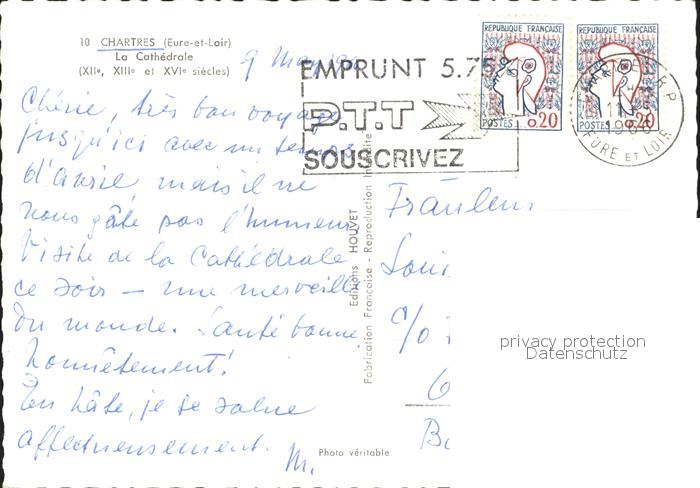 10 CHARTRES (Eure-et-Loir)
La Cathédrale
(XIIe, XIIIe et XVIe siècles)
9 Mai
EMPRUNT 5.75
P.T.T
SOUSCRIVEZ
REPUBLIQUE FRANÇAISE
POSTES 0,20
REPUBLIQUE FRANÇAISE
POSTES 0,20
R.P
EURE ET LOIR
Chérie, très bon voyage
jusqu'ici avec un temps
d'avril mais il ne
nous gâte pas l'humeur.
Visite de la Cathédrale
ce soir – une merveille
du monde. Santé bonne,
honnêtement!
En hâte, je te salue
affectueusement.
M.
Editions HOUVET
Fabrication Française - Reproduction Interdite
Photo véritable
Fräulein
c/o
6
privacy protection
Datenschutz